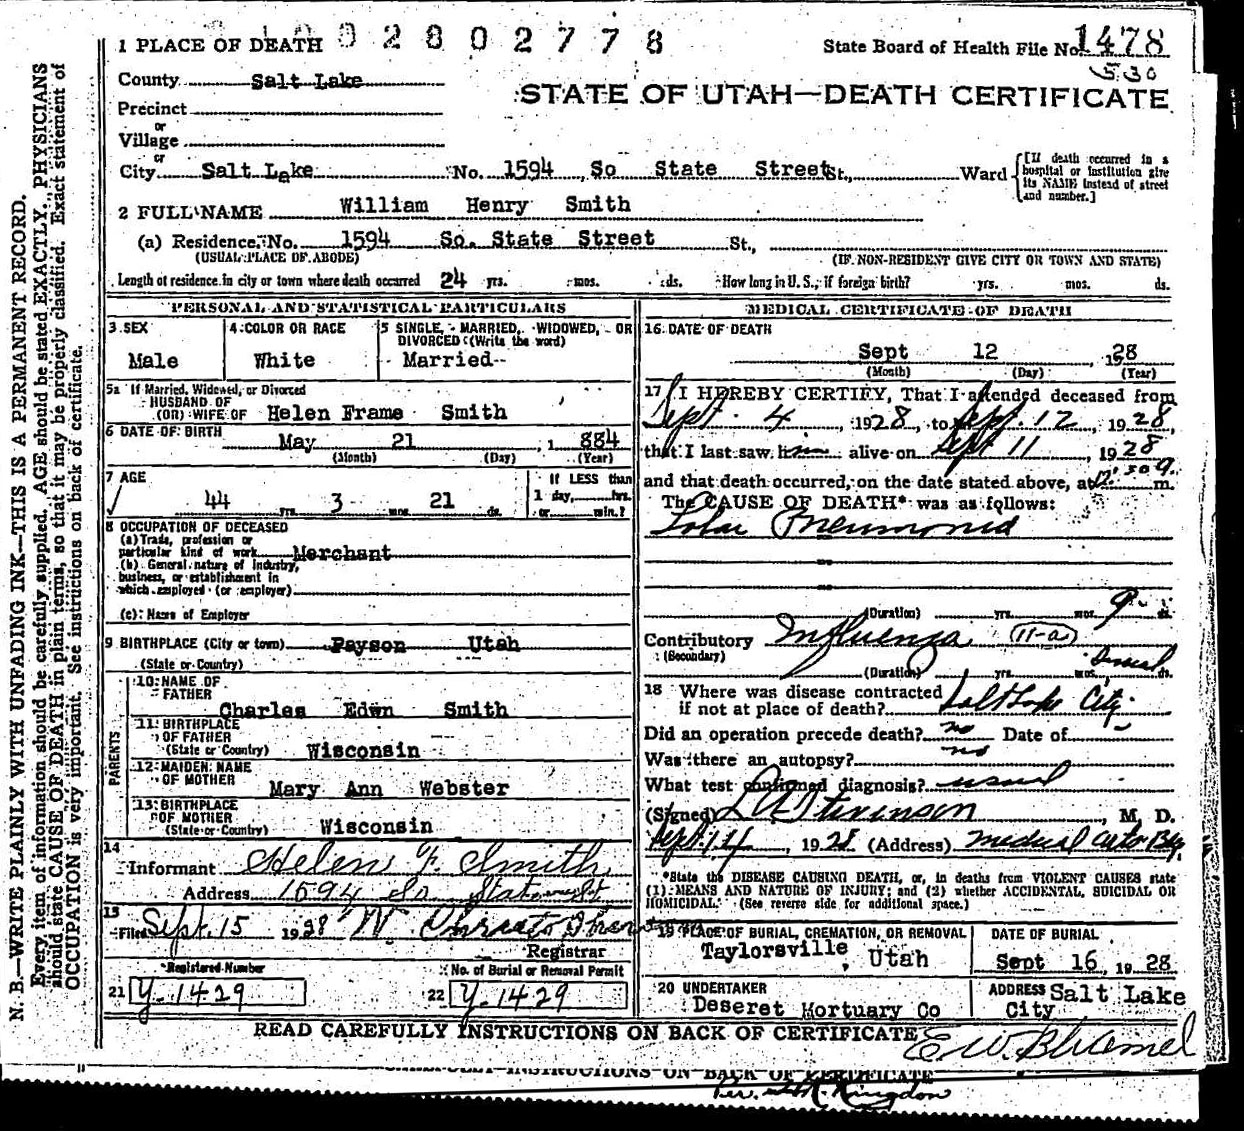 02802778
1 PLACE OF DEATH
State Board of Health File No. 1478
530
County Salt Lake
STATE OF UTAH—DEATH CERTIFICATE
Precinct
or
Village
or
City Salt Lake No. 1594 So State Street St., Ward
[If death occurred in a hospital or institution give its NAME instead of street and number.]
2 FULL NAME William Henry Smith
(a) Residence. No. 1594 So. State Street St.,
(USUAL PLACE OF ABODE) (IF NON-RESIDENT GIVE CITY OR TOWN AND STATE)
Length of residence in city or town where death occurred 24 yrs. mos. ds. How long in U. S., if foreign birth? yrs. mos. ds.
PERSONAL AND STATISTICAL PARTICULARS
3 SEX
Male
4 COLOR OR RACE
White
5 SINGLE, MARRIED, WIDOWED, OR
DIVORCED (Write the word)
Married
5a If Married, Widowed, or Divorced
HUSBAND OF
(OR) WIFE OF Helen Frame Smith
6 DATE OF BIRTH May 21 1 884
(Month) (Day) (Year)
7 AGE
44 yrs. 3 mos. 21 ds.
If LESS than
1 day, hrs.
or min.?
8 OCCUPATION OF DECEASED
(a) Trade, profession or
particular kind of work Merchant
(b) General nature of Industry,
business, or establishment in
which employed (or employer)
(c) Name of Employer
9 BIRTHPLACE (City or town) Payson Utah
(State or Country)
PARENTS
10 NAME OF
FATHER
Charles Edwn Smith
11 BIRTHPLACE
OF FATHER
(State or Country) Wisconsin
12 MAIDEN NAME
OF MOTHER
Mary Ann Webster
13 BIRTHPLACE
OF MOTHER
(State or Country) Wisconsin
14
Informant Helen F. Smith
Address 1594 So State St
15
Filed Sept. 15 1928
Registrar
Registered Number
21 Y-1429
No. of Burial or Removal Permit
22 Y-1429
MEDICAL CERTIFICATE OF DEATH
16 DATE OF DEATH
Sept 12 1928
(Month) (Day) (Year)
17 I HEREBY CERTIFY, That I attended deceased from
Sept. 4, 1928, to Sept. 12, 1928,
that I last saw him alive on Sept 11, 1928
and that death occurred, on the date stated above, at 12:30 a. m.
The CAUSE OF DEATH* was as follows:
Lobar Pneumonia
(Duration) yrs. mos. 9 ds.
Contributory Influenza (11-a)
(Secondary)
(Duration) yrs. mos. ds.
18 Where was disease contracted
if not at place of death? Salt Lake City
Did an operation precede death? no Date of
Was there an autopsy? no
What test confirmed diagnosis? usual
(Signed) L A Stevenson, M. D.
Sept. 14, 1928 (Address) Medical Arts Blg
*State the DISEASE CAUSING DEATH, or, in deaths from VIOLENT CAUSES state
(1) MEANS AND NATURE OF INJURY; and (2) whether ACCIDENTAL, SUICIDAL OR
HOMICIDAL. (See reverse side for additional space.)
19 PLACE OF BURIAL, CREMATION, OR REMOVAL
Taylorsville, Utah
DATE OF BURIAL
Sept 16, 1928
20 UNDERTAKER
Deseret Mortuary Co
ADDRESS Salt Lake
City
READ CAREFULLY INSTRUCTIONS ON BACK OF CERTIFICATE
INSTRUCTIONS ON BACK OF CERTIFICATE
N. B.—WRITE PLAINLY WITH UNFADING INK—THIS IS A PERMANENT RECORD.
Every item of information should be carefully supplied. AGE should be stated EXACTLY. PHYSICIANS
should state CAUSE OF DEATH in plain terms, so that it may be properly classified. Exact statement of
OCCUPATION is very important. See instructions on back of certificate.